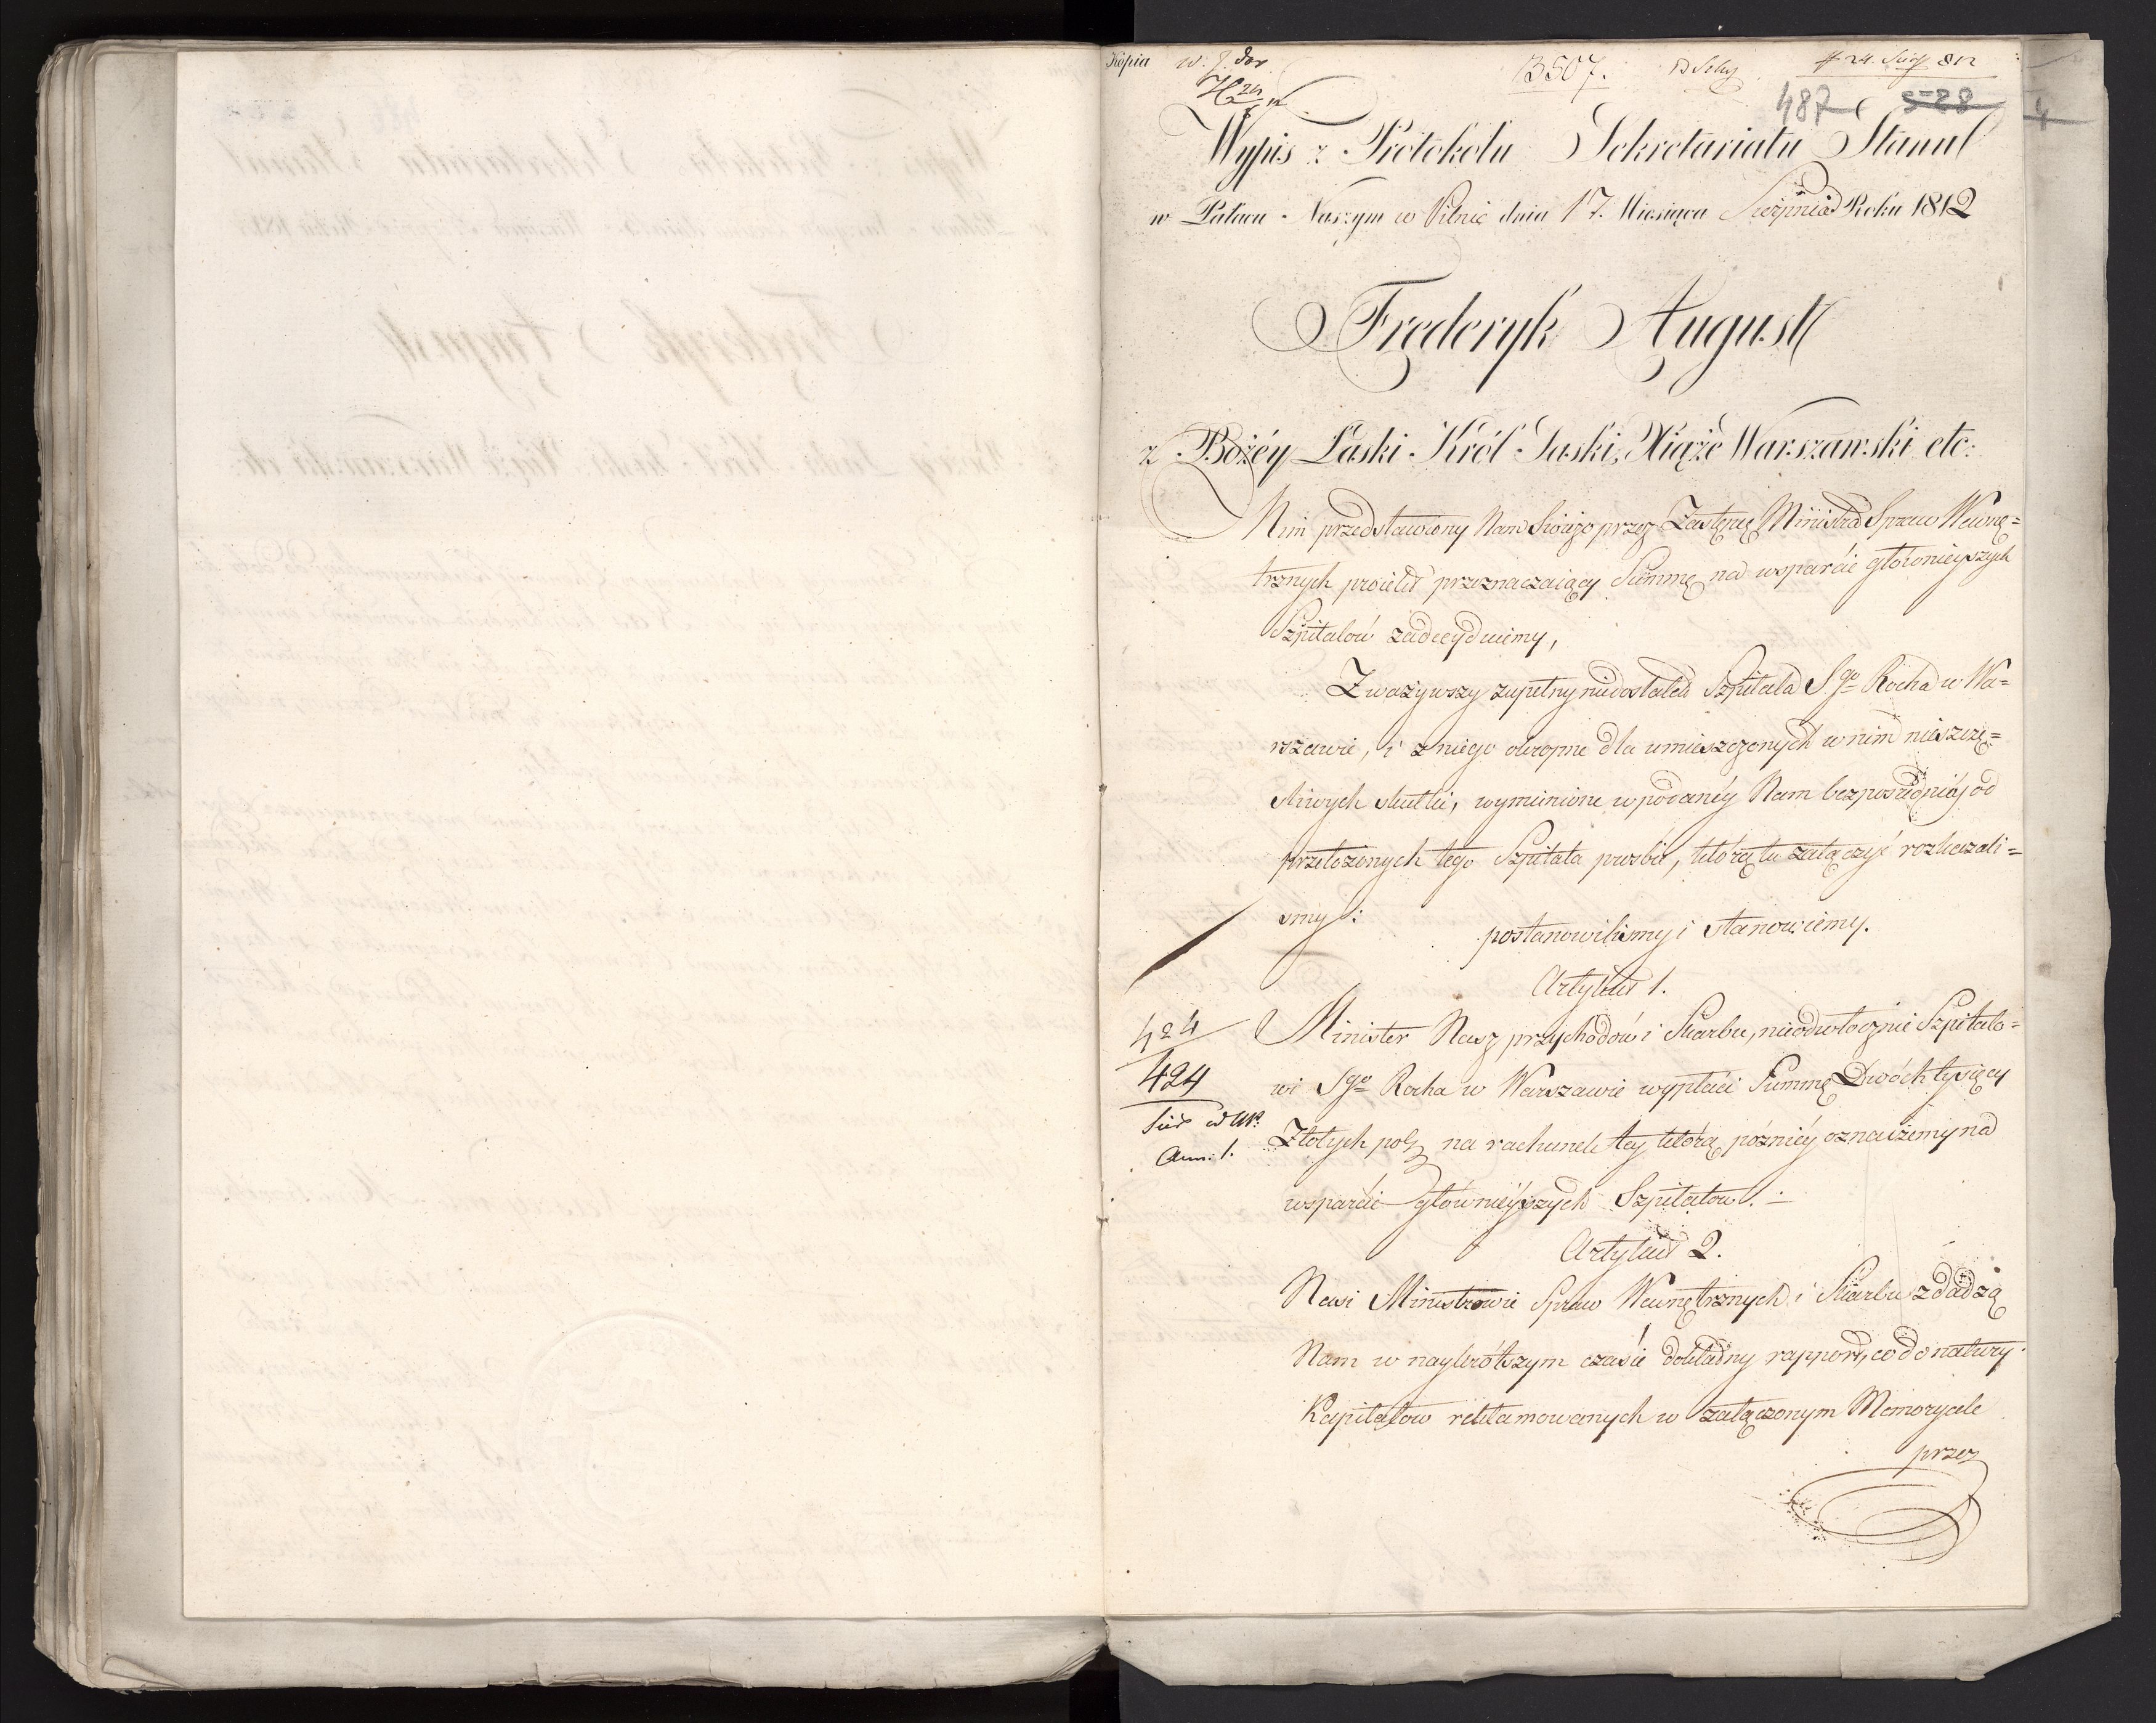 Kopia
3507.
# 24. Sierp 812
487
528
4
Wypis z Protokołu Sekretariatu Stanu
w Pałacu Naszym w Pilnic dnia 17. Miesiąca Sierpnia Roku 1812
Fryderyk August
z Bożéy Łaski Król Saski, Xiąże Warszawski etc:
Nim przedstawiony Nam świeżo przez Zastępcę Ministra Spraw Wewnę=
trznych proiekt przeznaczaiący Summę na wsparcie głównieyszych
Szpitalow zadecyduiemy,
Zważywszy zupełny niedostatek Szpitala Sgo Rocha w Wa=
rszawie, i z niego okropne dla umieszczonych w nim nieszczę=
śliwych skutki, wymienione w podanéy Nam bezpośrednio od
przełożonych tego Szpitala prośbie, którą tu załączyć rozkazali=
smy:
postanowiliśmy i stanowiemy.
Artykuł 1.
424
424
Minister Nasz przychodów i Skarbu, nieodwłocznie Szpitalo=
wi Sgo Rocha w Warszawie wypłaci Summę Dwóch tysięcy
Złotych pol. na rachunek tey którą późniéy oznaczemy na
wsparcie główniéyszych Szpitalow.
Artykuł 2.
Nasi Ministrowie Spraw Wewnętrznych i Skarbu zdadzą
Nam w naykrótszym czasie dokładny rapport, co do natury
Kapitałow reklamowanych w załączonym Memoryale
przez